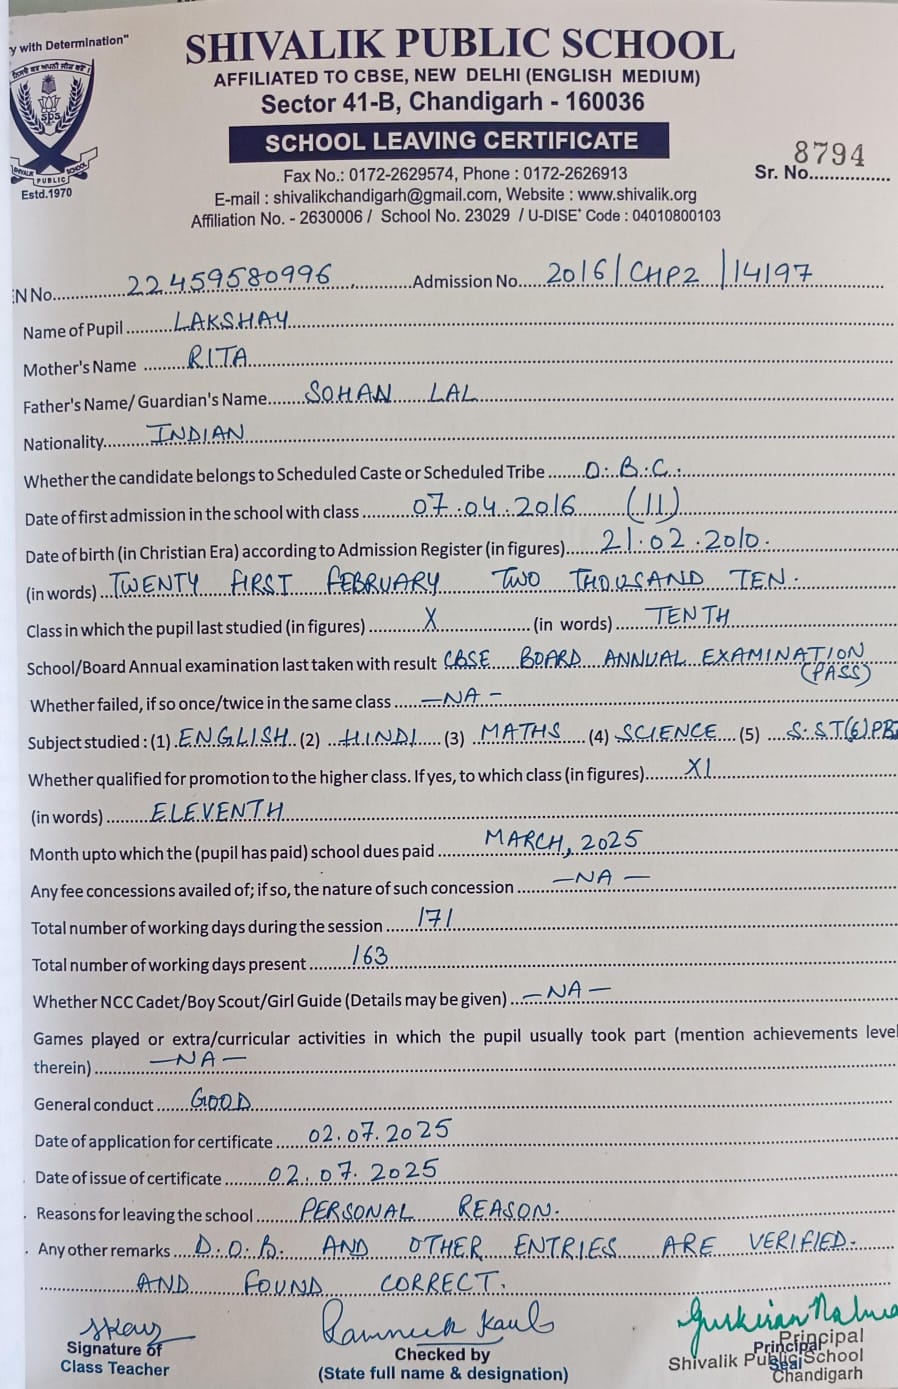 y with Determination"
SHIVALIK PUBLIC SCHOOL
AFFILIATED TO CBSE, NEW DELHI (ENGLISH MEDIUM)
Sector 41-B, Chandigarh - 160036
SCHOOL LEAVING CERTIFICATE
SPS
SHIVALIK PUBLIC SCHOOL
Estd.1970
8794
Sr. No................
Fax No.: 0172-2629574, Phone : 0172-2626913
E-mail : shivalikchandigarh@gmail.com, Website : www.shivalik.org
Affiliation No. - 2630006 / School No. 23029 / U-DISE+ Code : 04010800103
EN No. 22459580996 Admission No. 2016/CHP2/14197
Name of Pupil LAKSHAY
Mother's Name RITA
Father's Name/ Guardian's Name SOHAN LAL
Nationality INDIAN
Whether the candidate belongs to Scheduled Caste or Scheduled Tribe O.B.C.
Date of first admission in the school with class 07.04.2016 (II)
Date of birth (in Christian Era) according to Admission Register (in figures) 21.02.2010.
(in words) TWENTY FIRST FEBRUARY TWO THOUSAND TEN.
Class in which the pupil last studied (in figures) X (in words) TENTH
School/Board Annual examination last taken with result CBSE BOARD ANNUAL EXAMINATION
(PASS)
Whether failed, if so once/twice in the same class —NA—
Subject studied : (1) ENGLISH (2) HINDI (3) MATHS (4) SCIENCE (5) S.ST (6) PB
Whether qualified for promotion to the higher class. If yes, to which class (in figures) XI
(in words) ELEVENTH
Month upto which the (pupil has paid) school dues paid MARCH, 2025
Any fee concessions availed of; if so, the nature of such concession —NA—
Total number of working days during the session 171
Total number of working days present 163
Whether NCC Cadet/Boy Scout/Girl Guide (Details may be given) —NA—
Games played or extra/curricular activities in which the pupil usually took part (mention achievements level
therein) —NA—
General conduct GOOD
Date of application for certificate 02.07.2025
Date of issue of certificate 02.07.2025
Reasons for leaving the school PERSONAL REASON.
Any other remarks D.O.B. AND OTHER ENTRIES ARE VERIFIED.
AND FOUND CORRECT.
Ramneek Kaul
Gurkiran
Signature of
Class Teacher
Checked by
(State full name & designation)
Principal
Seal
Principal
Shivalik Public School
Chandigarh